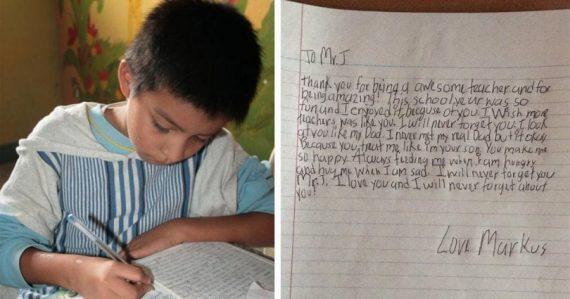 To Mr. J
Thank you for being a awesome teacher and for
being amazing! This school year was so
fun and I enjoyed it because of you. I wish more
teachers was like you. I will never forget you. I look
at you like my Dad. I never met my real Dad but it okay
Because you treat me like im your son. You make me
so happy. Always feeding me when I am hungry
and hug me when I am sad. I will never forget you
Mr. J, I love you and I will never forget about
you!
Love Markus